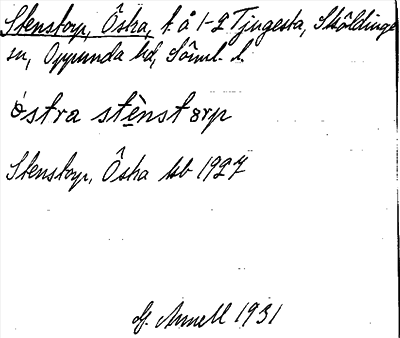 Stenstorp, Östra, t. å 1-2 Tjugesta, Sköldinge
sn, Oppunda hd, Söml. l.
östra stènstorp
Stenstorp, Östra kb 1927
G. Annell 1931